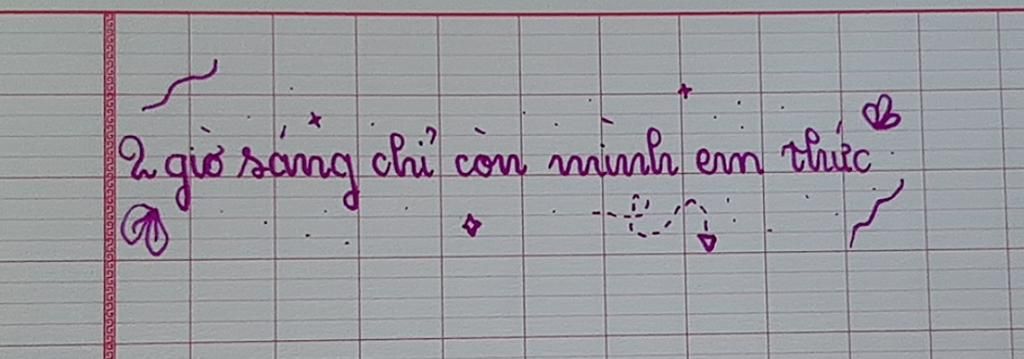 2 giờ sáng chỉ còn mình em thức